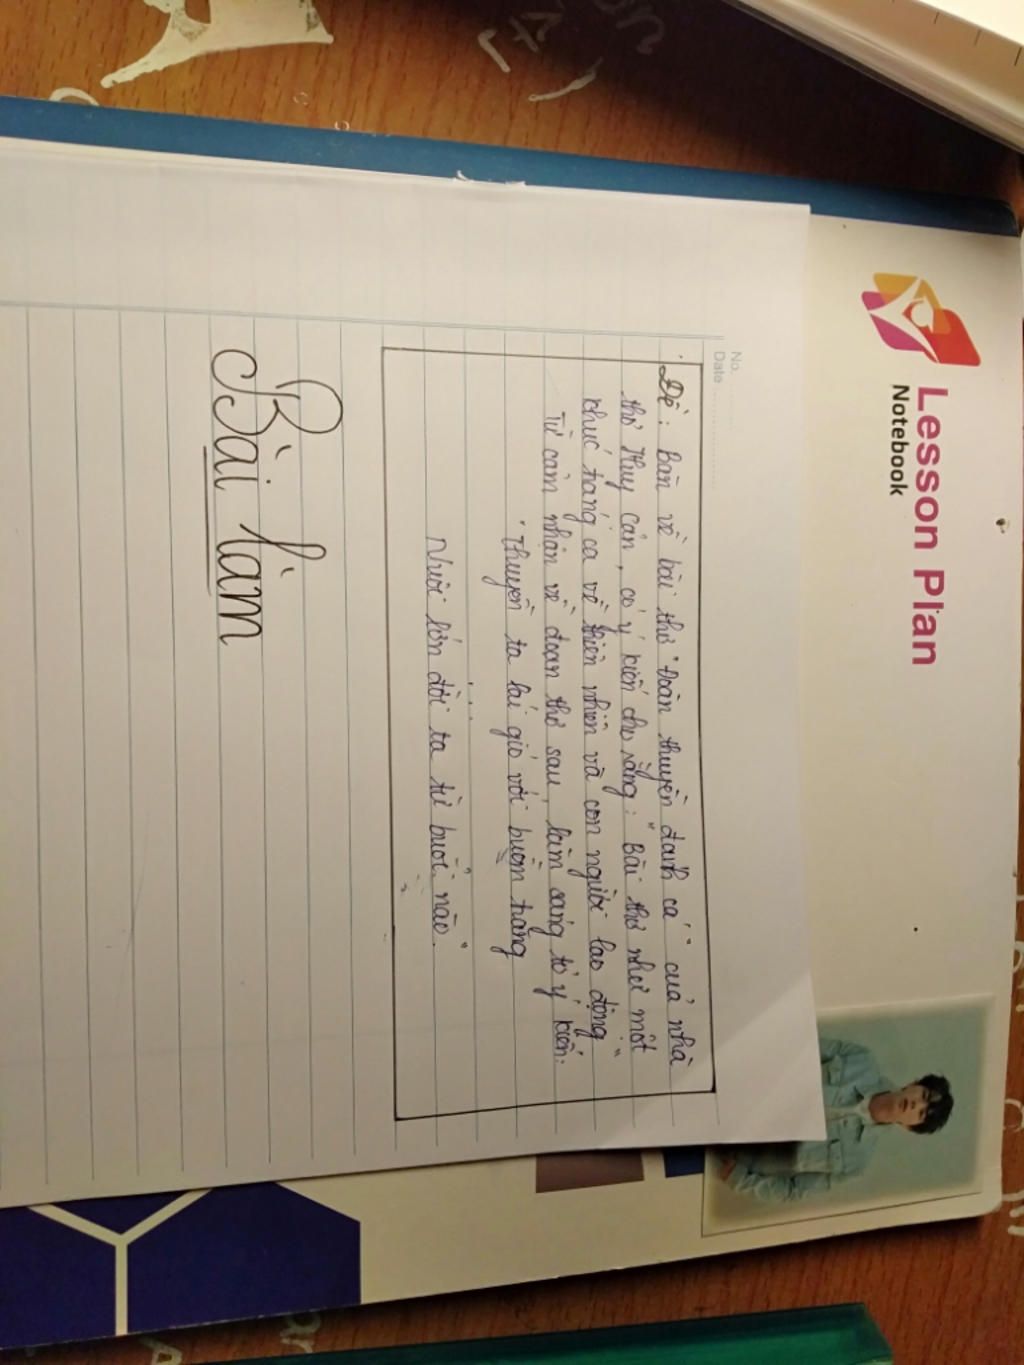 Lesson Plan
Notebook
No.
Date
Đề: Bàn về bài thơ "Đoàn thuyền đánh cá" của nhà
thơ Huy Cận, có ý kiến cho rằng: "Bài thơ như một
khúc tráng ca về thiên nhiên và con người lao động"
Từ cảm nhận về đoạn thơ sau, làm sáng tỏ ý kiến:
"Thuyền ta lái gió với buồm trăng
...
Nuôi lớn đời ta tự buổi nào."
Bài làm